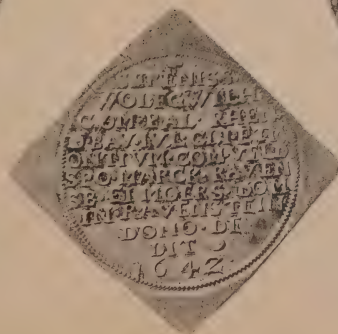 WOLFG·WILH
COM·PAL·RHEN
D·BAV·IVL·CLI·ET
MONTIVM·COM·VELD
SPO·MARCK·RAVEN
SB·ET MOERS·DOM
IN·RAVENSTEIN
DONO·DE
DIT
1642·